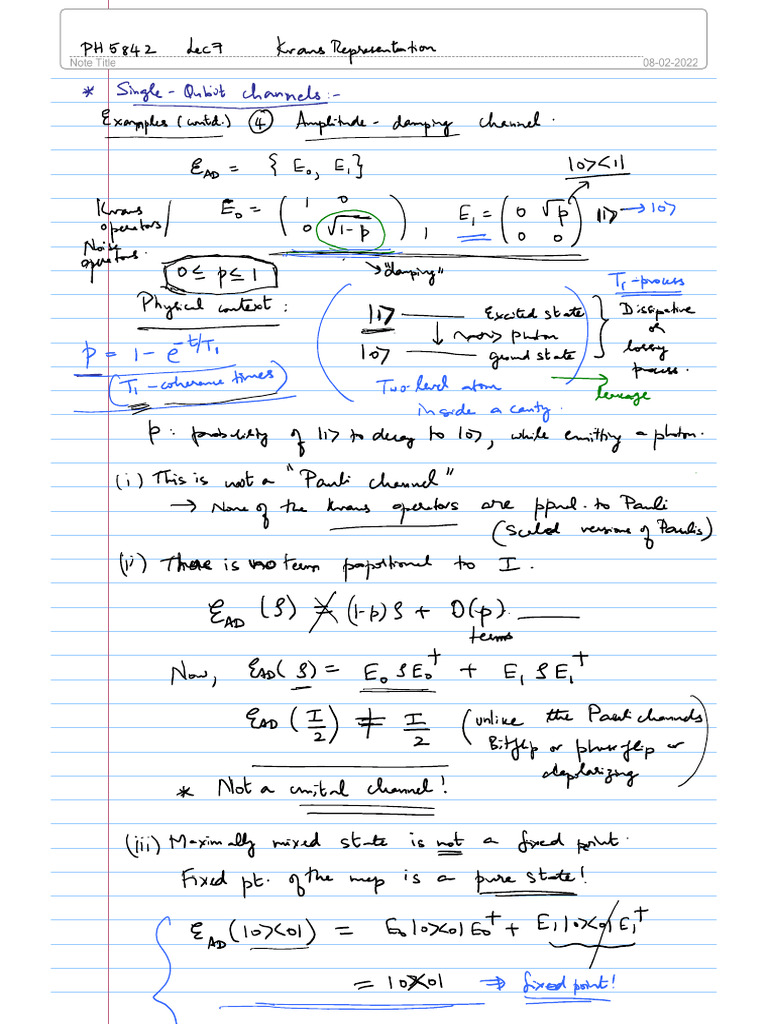 PH5842 Lec 7 Kraus Representation
Note Title 08-02-2022
* Single-Qubit channels:-
Examples (contd.) ④ Amplitude-damping channel.
ℰ_AD = { E₀, E₁} |0><1|
Kraus operators/ Noise operators. E₀ = ( 1 0 0 √1-p ) , E₁ = ( 0 √p 0 0 ) |1> → |0>
0 ≤ p ≤ 1 → "damping" T₁-process
Physical context: |1> Excited state Dissipative or lossy process.
p = 1 - e^{-t/T₁} ↓ photon
|0> ground state
T₁-coherence times Two-level atom inside a cavity. leakage
p: probability of |1> to decay to |0>, while emitting a photon.
(i) This is not a "Pauli channel"
→ None of the Kraus operators are ppnl. to Pauli
(Scaled versions of Paulis)
(ii) There is no term propotional to I.
ℰ_AD (ρ) ≠ (1-p)ρ + O(p) terms
Now, ℰ_AD(ρ) = E₀ρE₀† + E₁ρE₁†
ℰ_AD (I/2) ≠ I/2 (unlike the Pauli channels
Bitflip or phaseflip or
depolarizing)
* Not a unital channel!
(iii) Maximally mixed state is not a fixed point.
Fixed pt. of the map is a pure state!
ℰ_AD (|0><0|) = E₀|0><0|E₀† + E₁|0><0|E₁†
= |0><0| ⇒ fixed point!